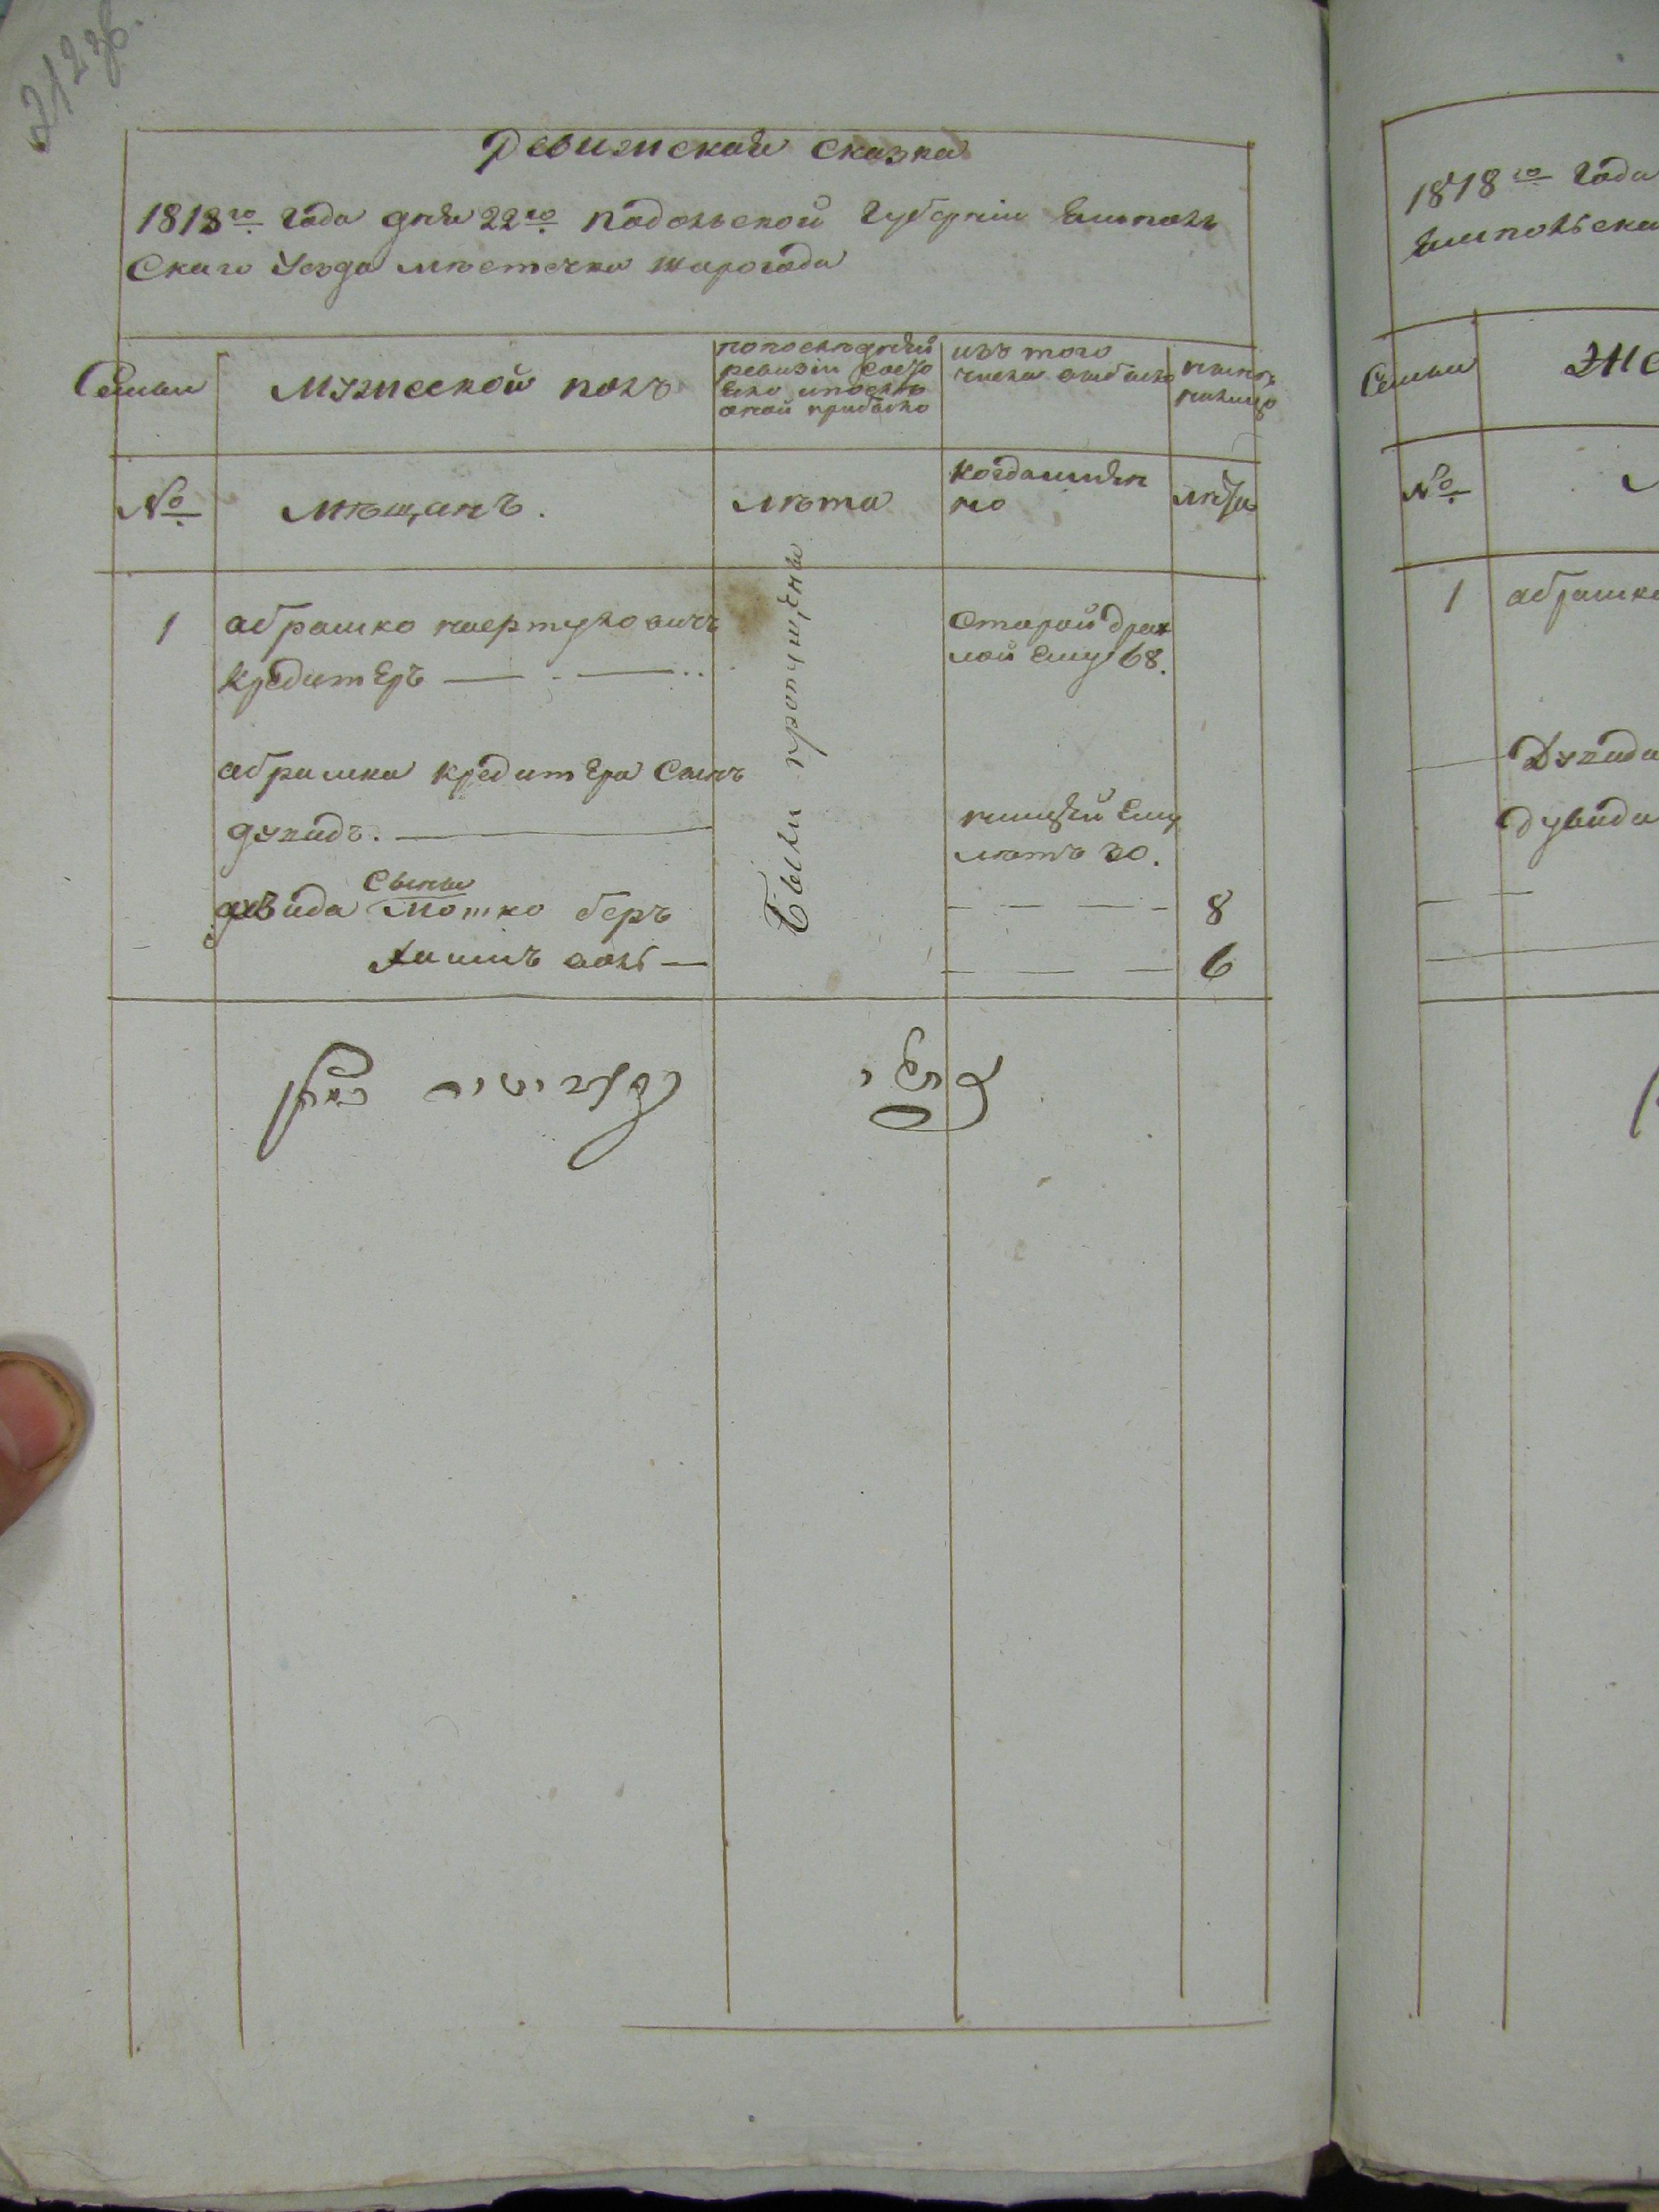 212 об.
Ревижская сказка
1818го года дня 22го Подольской губерніи Ямполь
Скаго Уезда мѣстечка Шарогода
Семьи
Мужеской полъ
по последней
ревизіи состо
яло и после
оной прибыло
изъ того
числа выбыло
ныне
налицо
№
мѣщанъ.
лѣта
когда имян
но
лѣта
1
абрашко
кредитеръ
Были пропущены
старой дрях
лой ему 68.
абрашка кредитера Сынъ
дувидъ.
нищей ему
летъ 30.
Сыны
дувида мотко беръ
8
хаимъ
6
1818го года
Ямпольска
Семьи
Же
№
1
абрашка
Дувида
дувида